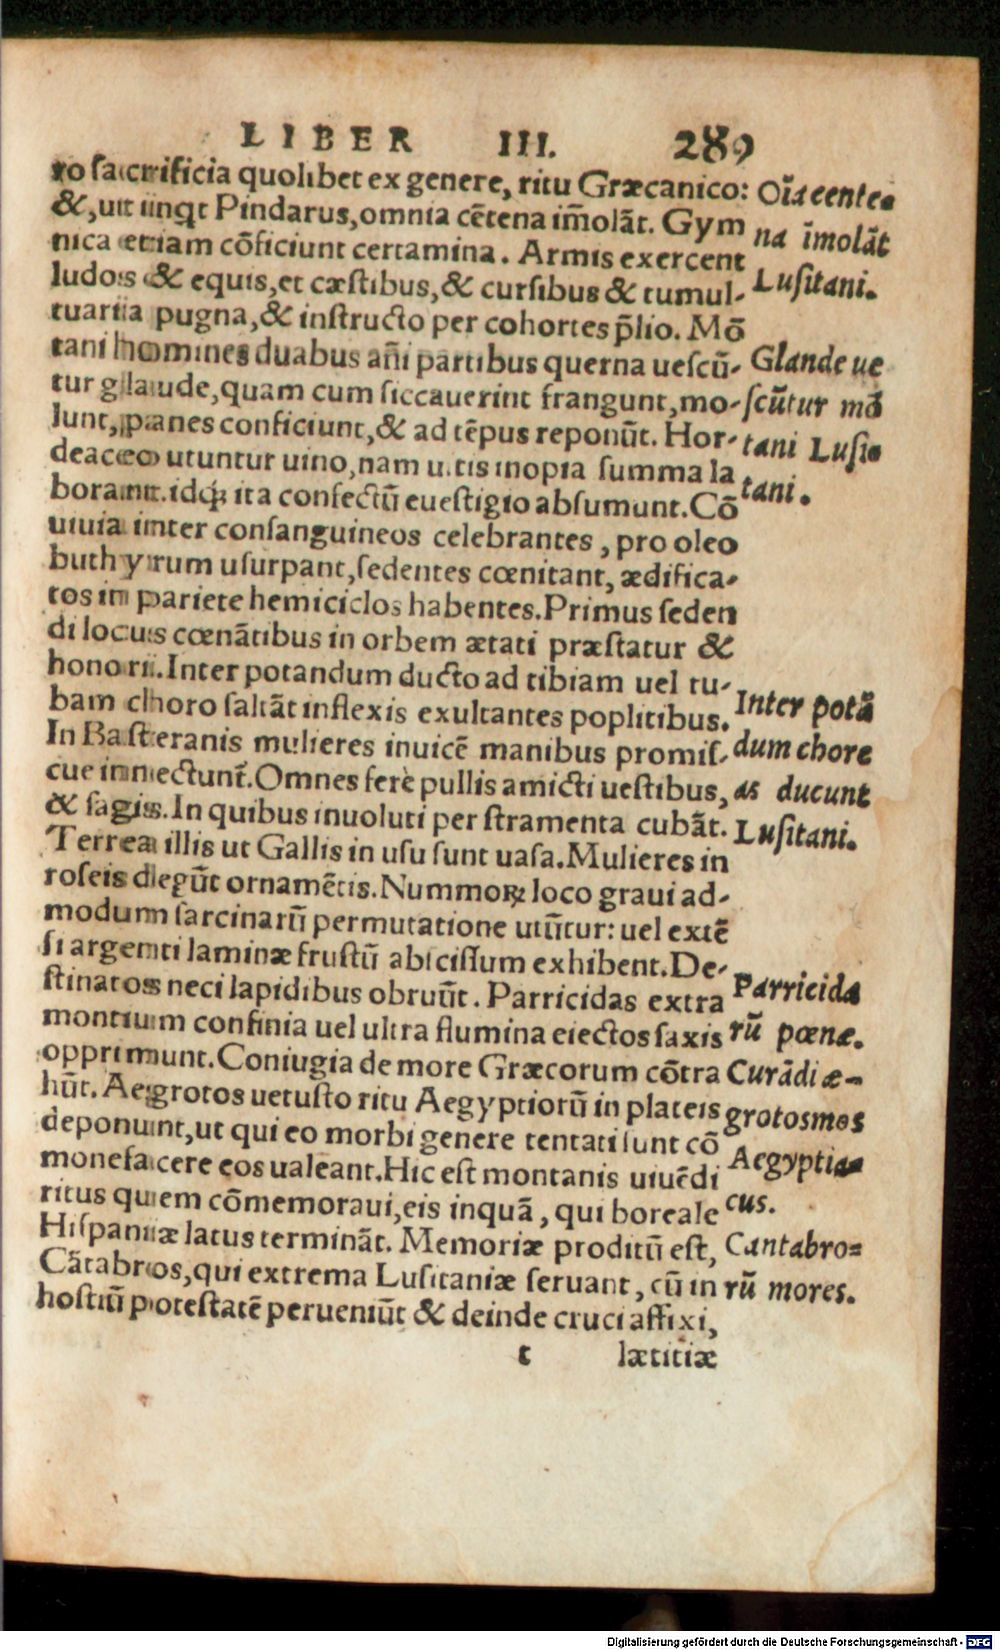 LIBER III. 289
ro sacrificia quolibet ex genere, ritu Græcanico:
&, ut inqt Pindarus, omnia cētena im̄olāt. Gym
nica etiam cōficiunt certamina. Armis exercent
ludos & equis, et cæstibus, & cursibus & tumul-
tuaria pugna, & instructo per cohortes p̄lio. Mō
tani homines duabus an̄i partibus querna uescū-
tur glande, quam cum siccauerint frangunt, mo-
lunt, panes conficiunt, & ad tēpus reponūt. Hor-
deaceo utuntur uino, nam uitis inopia summa la
borant. idq; ita confectū euestigio absumunt. Cō
uiuia inter consanguineos celebrantes, pro oleo
buthyrum usurpant, sedentes cœnitant, ædifica-
tos in pariete hemiciclos habentes. Primus seden
di locus cœnātibus in orbem ætati præstatur &
honori. Inter potandum ducto ad tibiam uel tu-
bam choro saltāt inflexis exultantes poplitibus.
In Basteranis mulieres inuicē manibus promis-
cue innectunt̄. Omnes ferè pullis amicti uestibus,
& sagis. In quibus inuoluti per stramenta cubāt.
Terrea illis ut Gallis in usu sunt uasa. Mulieres in
roseis degūt ornamētis. Nummoꝝ loco graui ad-
modum sarcinarū permutatione utūtur: uel extē
si argenti laminæ frustū abscissum exhibent. De-
stinatos neci lapidibus obruūt. Parricidas extra
montium confinia uel ultra flumina eiectos saxis
opprimunt. Coniugia de more Græcorum cōtra
hūt. Aegrotos uetusto ritu Aegyptiorū in plateis
deponunt, ut qui eo morbi genere tentati sunt cō
monefacere eos ualeant. Hic est montanis uiuēdi
ritus quem cōmemoraui, eis inquā, qui boreale
Hispaniæ latus termināt. Memoriæ proditū est,
Cātabros, qui extrema Lusitaniæ seruant, cū in
hostiū potestatē perueniūt & deinde cruci affixi,
t lætitiæ
Oīa cente-
na īmolāt
Lusitani.
Glande ue
scūtur mō
tani Lusi-
tani.
Inter potā
dum chore
as ducunt
Lusitani.
Parricida
rū pœnæ.
Curādi æ-
grotos mos
Aegyptia-
cus.
Cantabro-
rū mores.
Digitalisierung gefördert durch die Deutsche Forschungsgemeinschaft - DFG